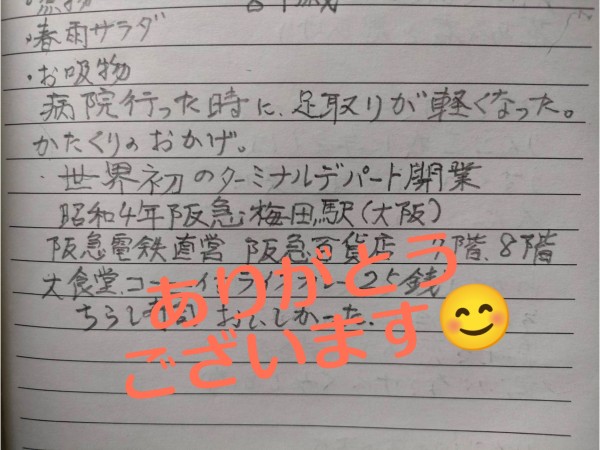 ・春雨サラダ
・お吸物
病院行った時に、足取りが軽くなった。
かたくりのおかげ。
・世界初のターミナルデパート開業
昭和4年阪急梅田駅(大阪)
阪急電鉄直営 阪急百貨店 7階、8階
大食堂、コーヒー付ライスカレー25銭
ちらし寿司 おいしかった。
ありがとう
ございます